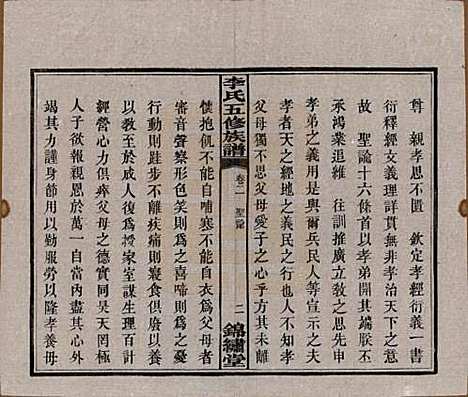 尊　親孝思不匱　欽定孝經衍義一書
衍釋經文義理詳貫無非孝治天下之意
故　聖諭十六條首以孝弟開其端朕丕
承鴻業追維　往訓推廣立敎之思先申
孝弟之義用是與爾兵民人等宣示之夫
孝者天之經地之義民之行也人不知孝
父母獨不思父母愛子之心乎方其未離
李氏五修族譜
卷之一　聖諭　二
錦繡堂
懷抱饑不能自哺寒不能自衣爲父母者
審音聲察形色笑則爲之喜啼則爲之憂
行動則跬步不離疾痛則寢食俱廢以養
以敎至於成人復爲授家室謀生理百計
經營心力俱瘁父母之德實同昊天罔極
人子欲報親恩於萬一自當內盡其心外
竭其力謹身節用以勤服勞以隆孝養毋